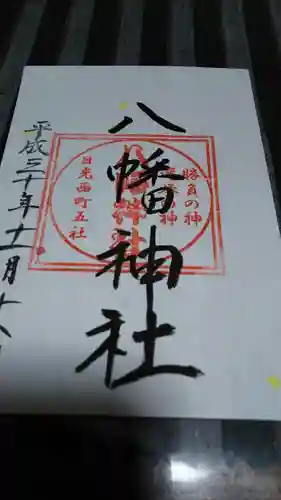 八幡神社
勝負の神
の神
日光西町五社
平成三十年十一月十八